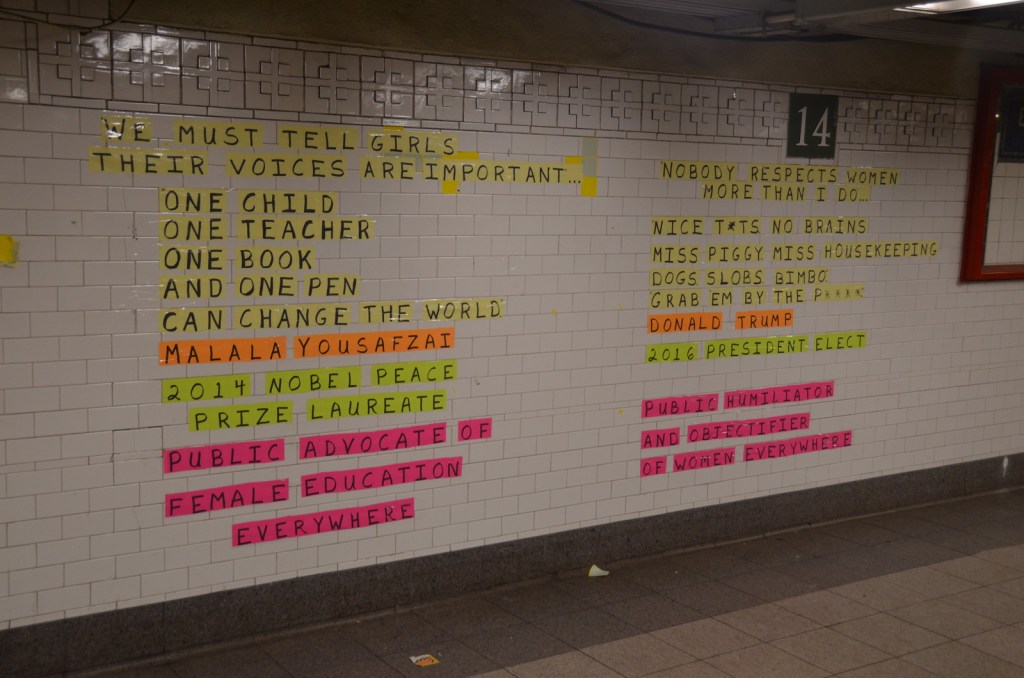 WE MUST TELL GIRLS
THEIR VOICES ARE IMPORTANT...
ONE CHILD
ONE TEACHER
ONE BOOK
AND ONE PEN
CAN CHANGE THE WORLD
MALALA YOUSAFZAI
2014 NOBEL PEACE
PRIZE LAUREATE
PUBLIC ADVOCATE OF
FEMALE EDUCATION
EVERYWHERE
14
NOBODY RESPECTS WOMEN
MORE THAN I DO...
NICE T*TS NO BRAINS
MISS PIGGY MISS HOUSEKEEPING
DOGS SLOBS BIMBO
GRAB EM BY THE P****
DONALD TRUMP
2016 PRESIDENT ELECT
PUBLIC HUMILIATOR
AND OBJECTIFIER
OF WOMEN EVERYWHERE